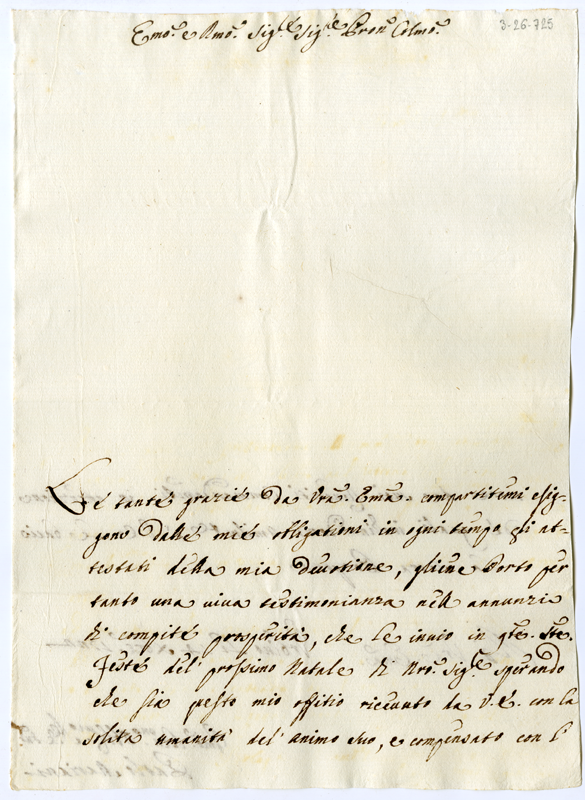 3-26-725
Emo. e Rmo. Sig.re Sig.re Pron. Colmo.
Le tante grazie da Vra. Ema. compartitemi esig-
gono dalle mie obligationi in ogni tempo gli at-
testati della mia devotione, gliene Porto per
tanto una viva testimonianza nell annunzio
di compite prosperità, che le invio in qte. Ste.
Feste del prossimo Natale di Nro. Sig.re sperando
che sia questo mio offitio ricevuto da V.E. con la
solita umanità del animo suo, e compensato con l'